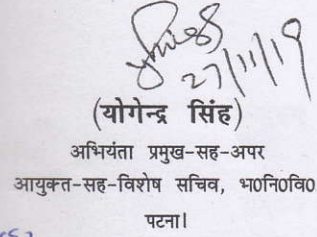 27/11/19
(योगेन्द्र सिंह)
अभियंता प्रमुख-सह-अपर
आयुक्त-सह-विशेष सचिव, भ0नि0वि0
पटना।